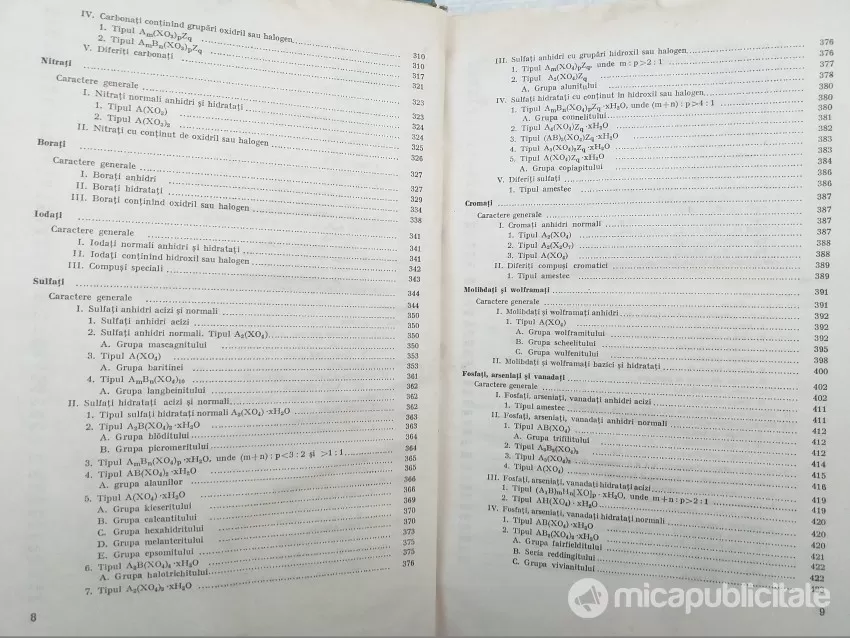 IV. Carbonați conținînd grupări oxidril sau halogen
1. Tipul Am(XO3)pZq 310
2. Tipul AmBn(XO3)pZq 310
V. Diferiți carbonați 317
Nitrați 321
Caractere generale 323
I. Nitrați normali anhidri și hidratați 323
1. Tipul A(XO3) 324
2. Tipul A(XO3)2 324
II. Nitrați cu conținut de oxidril sau halogen 325
Borați 326
Caractere generale 327
I. Borați anhidri 327
II. Borați hidratați 329
III. Borați conținînd oxidril sau halogen 334
Iodați 338
Caractere generale 341
I. Iodați normali anhidri și hidratați 341
II. Iodați conținînd hidroxil sau halogen 342
III. Compuși speciali 343
Sulfați 344
Caractere generale 344
I. Sulfați anhidri acizi și normali 350
1. Sulfați anhidri acizi 350
2. Sulfați anhidri normali. Tipul A2(XO4) 350
A. Grupa mascagnitului 350
3. Tipul A(XO4) 353
A. Grupa baritinei 353
4. Tipul AmBn(XO4)10 361
A. Grupa langbeinitului 362
II. Sulfați hidratați acizi și normali 362
1. Tipul sulfați hidratați normali A2(XO4)·xH2O 363
2. Tipul A2B(XO4)2·xH2O 363
A. Grupa blöditului 364
B. Grupa picromeritului 364
3. Tipul AmBn(XO4)p·xH2O, unde (m+n) : p<3 : 2 și >1 : 1 365
4. Tipul AB(XO4)2·xH2O 366
A. grupa alaunilor 366
5. Tipul A(XO4)·xH2O 369
A. Grupa kieseritului 370
B. Grupa calcantitului 370
C. Grupa hexahidritului 370
D. Grupa melanteritului 373
E. Grupa epsomitului 375
6. Tipul A2B(XO4)2·xH2O 375
A. Grupa halotrichitului 376
7. Tipul A2(XO4)3·xH2O
8
376
III. Sulfați anhidri cu grupări hidroxil sau halogen 376
1. Tipul Am(XO4)pZq, unde m : p>2 : 1 377
2. Tipul A2(XO4)Zq 378
A. Grupa alunitului 380
IV. Sulfați hidratați cu conținut în hidroxil sau halogen 380
1. Tipul AmBn(XO4)pZq·xH2O, unde (m+n) : p>4 : 1 380
A. Grupa connelitului 381
2. Tipul A4(XO4)Zq·xH2O 382
3. Tipul (AB)5(XO4)Zq·xH2O 383
4. Tipul A3(XO4)2Zq·xH2O 383
5. Tipul A(XO4)Zq·xH2O 384
A. Grupa copiapitului 386
V. Diferiți sulfați 386
1. Tipul amestec 387
Cromați 387
Caractere generale 387
I. Cromați anhidri normali 387
1. Tipul A2(XO4) 388
2. Tipul A2(X2O7) 388
3. Tipul A(XO4) 389
II. Diferiți compuși cromatici 389
1. Tipul amestec
Molibdați și wolframați 391
Caractere generale 391
I. Molibdați și wolframați anhidri 392
1. Tipul A(XO4) 392
A. Grupa wolframitului 392
B. Grupa scheelitului 395
C. Grupa wulfenitului 398
II. Molibdați și wolframați bazici și hidratați 400
Fosfați, arseniați și vanadați 402
Caractere generale 402
I. Fosfați, arseniați, vanadați anhidri acizi 411
1. Tipul amestec 411
II. Fosfați, arseniați, vanadați anhidri normali 412
1. Tipul AB(XO4) 412
A. Grupa trifilitului 412
2. Tipul 414
3. Tipul 415
4. Tipul A(XO4) 416
III. Fosfați, arseniați, vanadați hidratați acizi 419
1. Tipul (A2B)mHn[XO]p·xH2O, unde m+n : p>2 : 1 419
2. Tipul AH(XO4)·xH2O 420
IV. Fosfați, arseniați, vanadați hidratați normali 420
1. Tipul AB(XO4)·xH2O 420
2. Tipul AB2(XO4)2·xH2O 421
A. Grupa fairfielditului 422
B. Seria reddingitului 422
C. Grupa vivianitului
9
micapublicitate